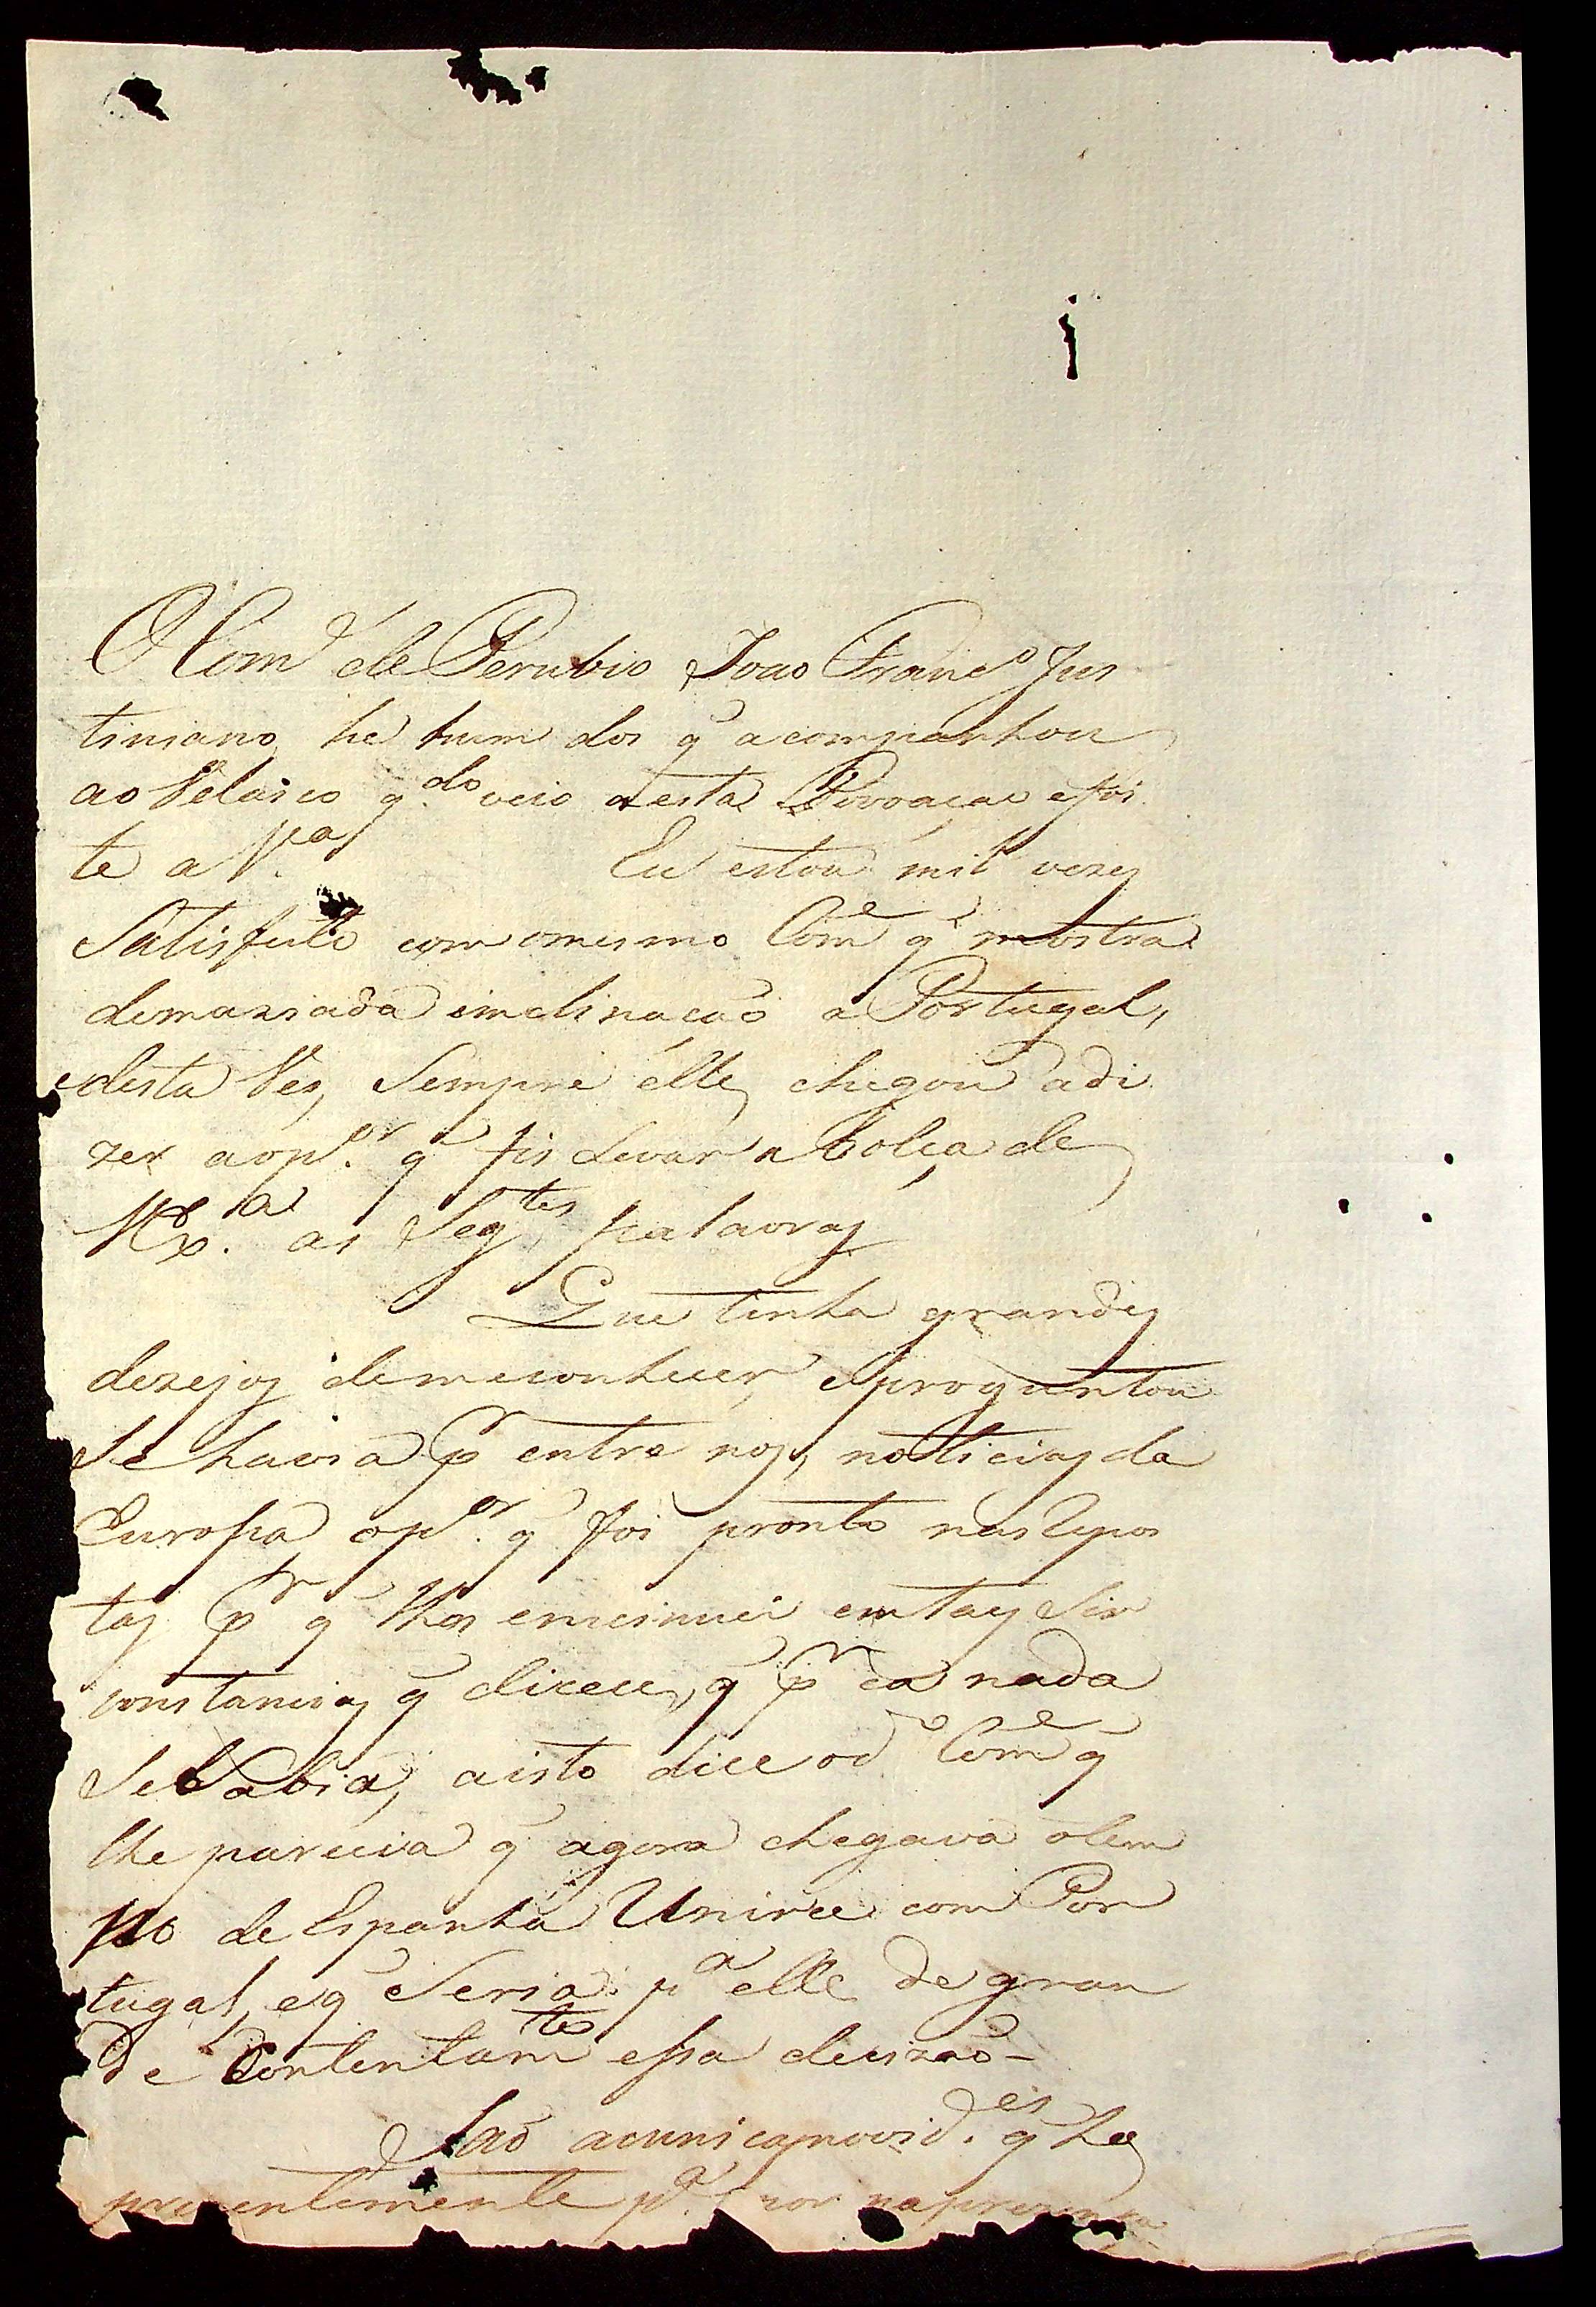 O Com.e de Perubio Joao Franc.o Jus
tiniano, he hum dos q̃ acompanhou
ao Velasco q.do veio a esta Povoaçaõ e foi
te a V.ca Eu estou mil vezes
Satisfeito com omesmo Com.e q̃ mostra
demaziada inclinacaõ a Portugal,
edesta Ves, Sempre elle chegou adi
zer aop.or q̃ fis Levar a bolça de
V.Ex.a as Seg.tes palavras
Que tinha grandes
dezejos demeconhecer, eproguntou
Se havia p.r entre nos, notticias da
Europa, op.or q̃ foi pronto nas repos
tas p.r q̃ lhas emcinuei em tais Sir
constancias q̃ dicece, q̃ p.r ca nada
Se Sabia, aisto dice od.o Com.e q̃
lhe parecia q̃ agora chegava otem
po de Espanha Unirce com Por
tugal, eq̃ Seria p.a elle de gran
de Contentam.to essa decizaõ-
Saõ aunicas novid.es q̃ ha
prezentemente p.a por naprezença